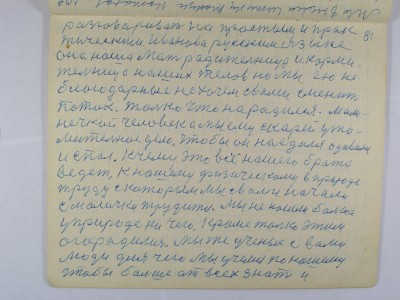 разговариваем на простым и прак 81
тическим Иванова русским языке
она наша мат радительница и корми-
тельница наших телов но мы ею не
благодарные не хочем с вами сменить
Поток. Только что народился. Мален
ечкой человек а мы ему скарей уто-
лительное дело. чтобы он наедался одевали
и спал. К чему это всё нашего брата
ведет. К нашему физическому в природе
труду с которым мы с вами начали
с маличка трудится. Мы не нашли больше
у природе ни чего. Кроме только этим
огородились. Мы же ученые с вами
люди для чего мы учены по нашему
чтобы больше от всех знать и